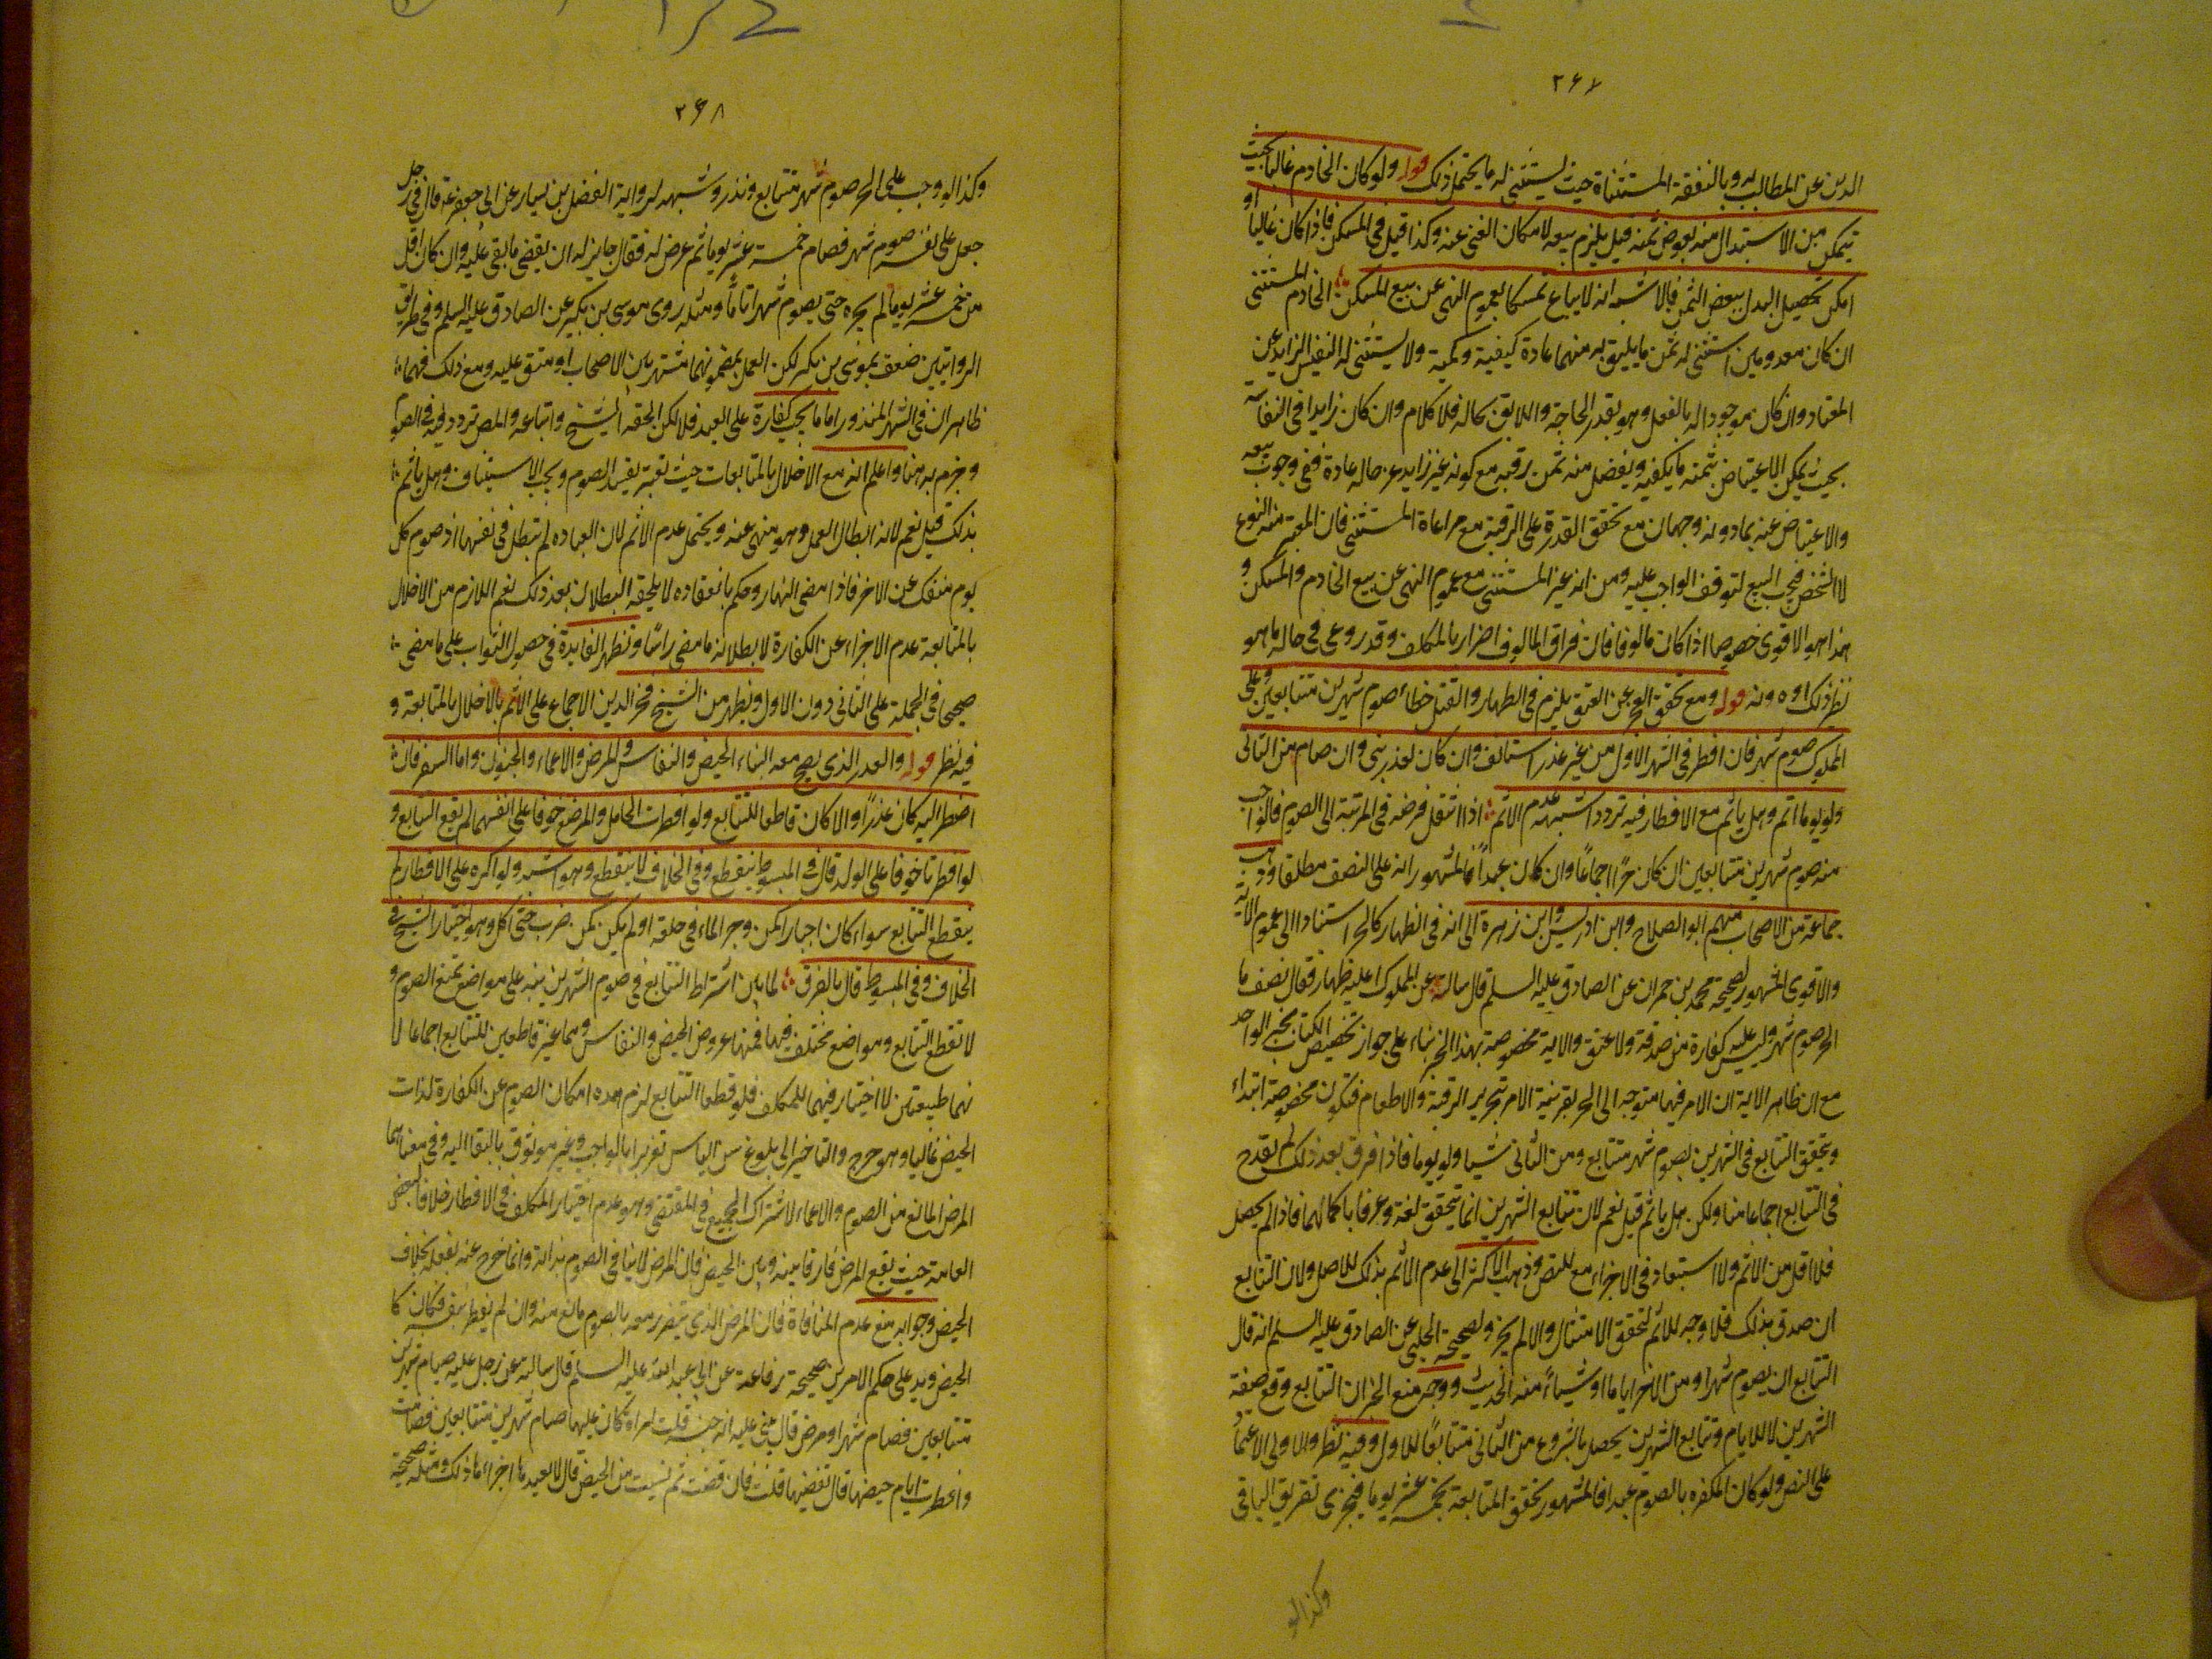 ٢۶٧
الدين عن المطالب به وبالنفقة المستثناة حيث يستثنى له ما يحتمل ذلك قوله ولو كان الخادم غاليا بحيث
يتمكن من الاستبدال منه ببعض ثمنه قيل يلزم بيعه لامكان الغنى عنه وكذا قيل في المسكن فاذا كان غاليا و
امكن تحصيل البدل ببعض الثمن فالاشبه انه لا يباع تمسكا بعموم النهى عن بيع المسكن الخادم المستثنى
ان كان معدومين استثنى له ثمن ما يليق به منهما عادة كيفية وكمية ولا يستثنى له النفيس الزايد عن
المعتاد وان كان موجودا له بالفعل وهو بقدر الحاجة واللايق بحاله فلا كلام وان كان زايدا في النفاسة
بحيث يمكن الاعتياض بثمنه ما يكفيه ويفضل منه ثمن رقبه مع كونه غير زايد عن حاله عادة ففي وجوب بيعه
والاعتياض عنه بما دونه وجهان مع تحقق القدرة على الرقبة مع مراعاة المستثنى فان المعتبر منه النوع
لا الشخص فيجب البيع لتوقف الواجب عليه ومن انه عين المستثنى مع عموم النهى عن بيع الخادم والمسكن و
هذا هو الاقوى خصوصا اذا كان مالوفا فان فراق المالوف اضرار بالمكلف وقد روعي في حاله ما هو
نظير ذلك او دونه قوله ومع تحقق العجز عن العتق يلزم في الظهار والقتل خطاء صوم شهرين متتابعين وعلى
المملوك صوم شهر فان افطر في الشهر الاول من غير عذر استانف وان كان لعذر بنى وان صام من الثاني
ولو يوما اتم وهل ياثم مع الافطار فيه تردد اشبهه عدم الاثم اذا انتقل فرضه في المرتبة الى الصوم فالواجب
منه صوم شهرين متتابعين ان كان حرًا اجماعًا وان كان عبداً فالمشهور انه على النصف مطلقا وذهب
جماعة من الاصحاب منهم ابو الصلاح وابن ادريس وابن زهرة الى انه في الظهار كالحر استنادا الى عموم الاية
والاقوى المشهور لصحيحة محمد بن حمران عن الصادق عليه السلم قال سالته عن المملوك اعليه ظهار فقال نصف ما
الحر صوم شهر وليس عليه كفارة من صدقة ولا عتق والاية مخصوصة بهذا الخبر بناء على جواز تخصيص الكتاب بخبر الواحد
مع ان ظاهر الاية ان الامر فيها متوجه الى الحر بقرينة الامر بتحرير الرقبة والاطعام فتكون مخصوصة ابتداء
ويتحقق التتابع في الشهرين بصوم شهر متتابع ومن الثاني شيا ولو يوما فاذا فرق بعد ذلك لم يقدح
في التتابع اجماعا منا ولكن هل ياثم قيل نعم لان تتابع الشهرين انما يتحقق لغة وعرفا باكمالهما فاذا لم يحصل
فلا اقل من الاثم ولا استبعاد في الاجزاء مع للنص وذهب الاكثر الى عدم الاثم بذلك للاصل ولان التتابع
ان صدق بذلك فلا وجه للاثم لتحقق الامتثال والا لم يجز ولصحيحة الحلبي عن الصادق عليه السلم انه قال
التتابع ان يصوم شهرا ومن الاخر اياما او شيئاً منه الحديث ووجه منع الخبر ان التتابع وقع صفة
الشهرين لا للايام وتتابع الشهرين يحصل بالشروع من الثاني متتابعًا للاول وفيه نظر والاولى الاعتماد
على النص ولو كان المكفر بالصوم عبدا فالمشهور تحقق المتابعة بخمسة عشر يوما فيجزى تفريق الباقي
وكذا لو
٢۶٨
وكذا لو وجب على الحر صوم شهر متتابع ونذر وشبهه لرواية الفضل بن يسار عن ابي جعفر ع قال في رجل
جعل على نفسه صوم شهر فصام خمسة عشر يوما ثم عرض له فقال جايز له ان يقضي ما بقي عليه وان كان اقل
من خمسة عشر يوما لم يجزه حتى يصوم شهرا تامًا ومثله روى موسى بن بكير عن الصادق عليه السلم وفي طريق
الروايتين ضعف بموسى بن بكر لكن العمل بمضمونهما مشتهر بين الاصحاب او متفق عليه ومع ذلك فهما
ظاهران في الشهر المنذور اما ما يجب كفارة على العبد فلا لكن الحقه الشيخ واتباعه والمص تردد فيه في الصوم
وجزم به هنا واعلم انه مع الاخلال بالمتابعات حيث تعتبر يفسد الصوم ويجب الاستيناف وهل ياثم
بذلك قيل نعم لانه ابطال العمل وهو منهى عنه ويحتمل عدم الاثم لان العباده لم تبطل في نفسها اذ صوم كل
يوم منفك عن الاخر فاذا مضى النهار وحكم بانعقاده لا يلحقه البطلان بعد ذلك نعم اللازم من الاخلال
بالمتابعة عدم الاجزاء عن الكفارة لا بطلانه ما مضى راسًا وتظهر الفايدة في حصول الثواب على ما مضى
صحيحى في الجملة على الثاني دون الاول ويظهر من الشيخ فخر الدين الاجماع على الاثم بالاخلال بالمتابعة و
فيه نظر قوله والعذر الذي يصح معه البناء الحيض والنفاس والمرض والاغماء والجنون واما السفر فان
اضطر اليه كان عذرًا والا كان قاطعا للتتابع ولو افطرت الحامل والمرضع خوفا على انفسهما لم يقطع التتابع و
لو افطرتا خوفا على الولد قال في المبسوط ينقطع وفي الخلاف لا ينقطع وهو اشبه ولو اكره على الافطار لم
ينقطع التتابع سواء كان اجبارا كمن وجر الماء في حلقه او لم يكن كمن ضرب حتى اكل وهو اختيار الشيخ في
الخلاف وفي المبسوط قال بالفرق لما بين اشتراط التتابع في صوم الشهرين نبه على مواضع تمنع الصوم و
لا تقطع التتابع ومواضع تختلف فيها فمنها عروض الحيض والنفاس وهما غير قاطعين للتتابع اجماعا لا
نهما طبيعتين لا اختيار فيهما للمكلف فلو قطعا التتابع لزم عدم امكان الصوم عن الكفارة لذات
الحيض غاليا وهو حرج والتاخير الى بلوغ سن الياس تغريرا بالواجب وغير موثوق بالبقا اليه وفي معناهما
المرض المانع من الصوم والاغماء لاشتراك الجميع في المقتضى وهو عدم اختيار المكلف في الافطار خلافا لبعض
العامة حيث يقطع المرض فارقا بينه وبين الحيض فان المرض لا ينافي الصوم بذاته وانما خرج عنه بفعله بخلاف
الحيض وجوابه منع عدم المنافاة فان المرض الذي يتضرر معه بالصوم مانع منه وان لم يفطر بنفسه فكان كا
الحيض ويدل على حكم الامرين صحيحة رفاعة عن ابي عبد الله عليه السلم قال سالته عن رجل عليه صيام شهرين
متتابعين فصام شهرا ومرض قال يبنى عليه الله حبسه قلت امراة كان عليها صيام شهرين متتابعين فصامت
وافطرت ايام حيضها قال تقضيها قلت فان قضت ثم يئست من الحيض قال لا تعيدها اجزاءها ذلك ومثله صحيحة